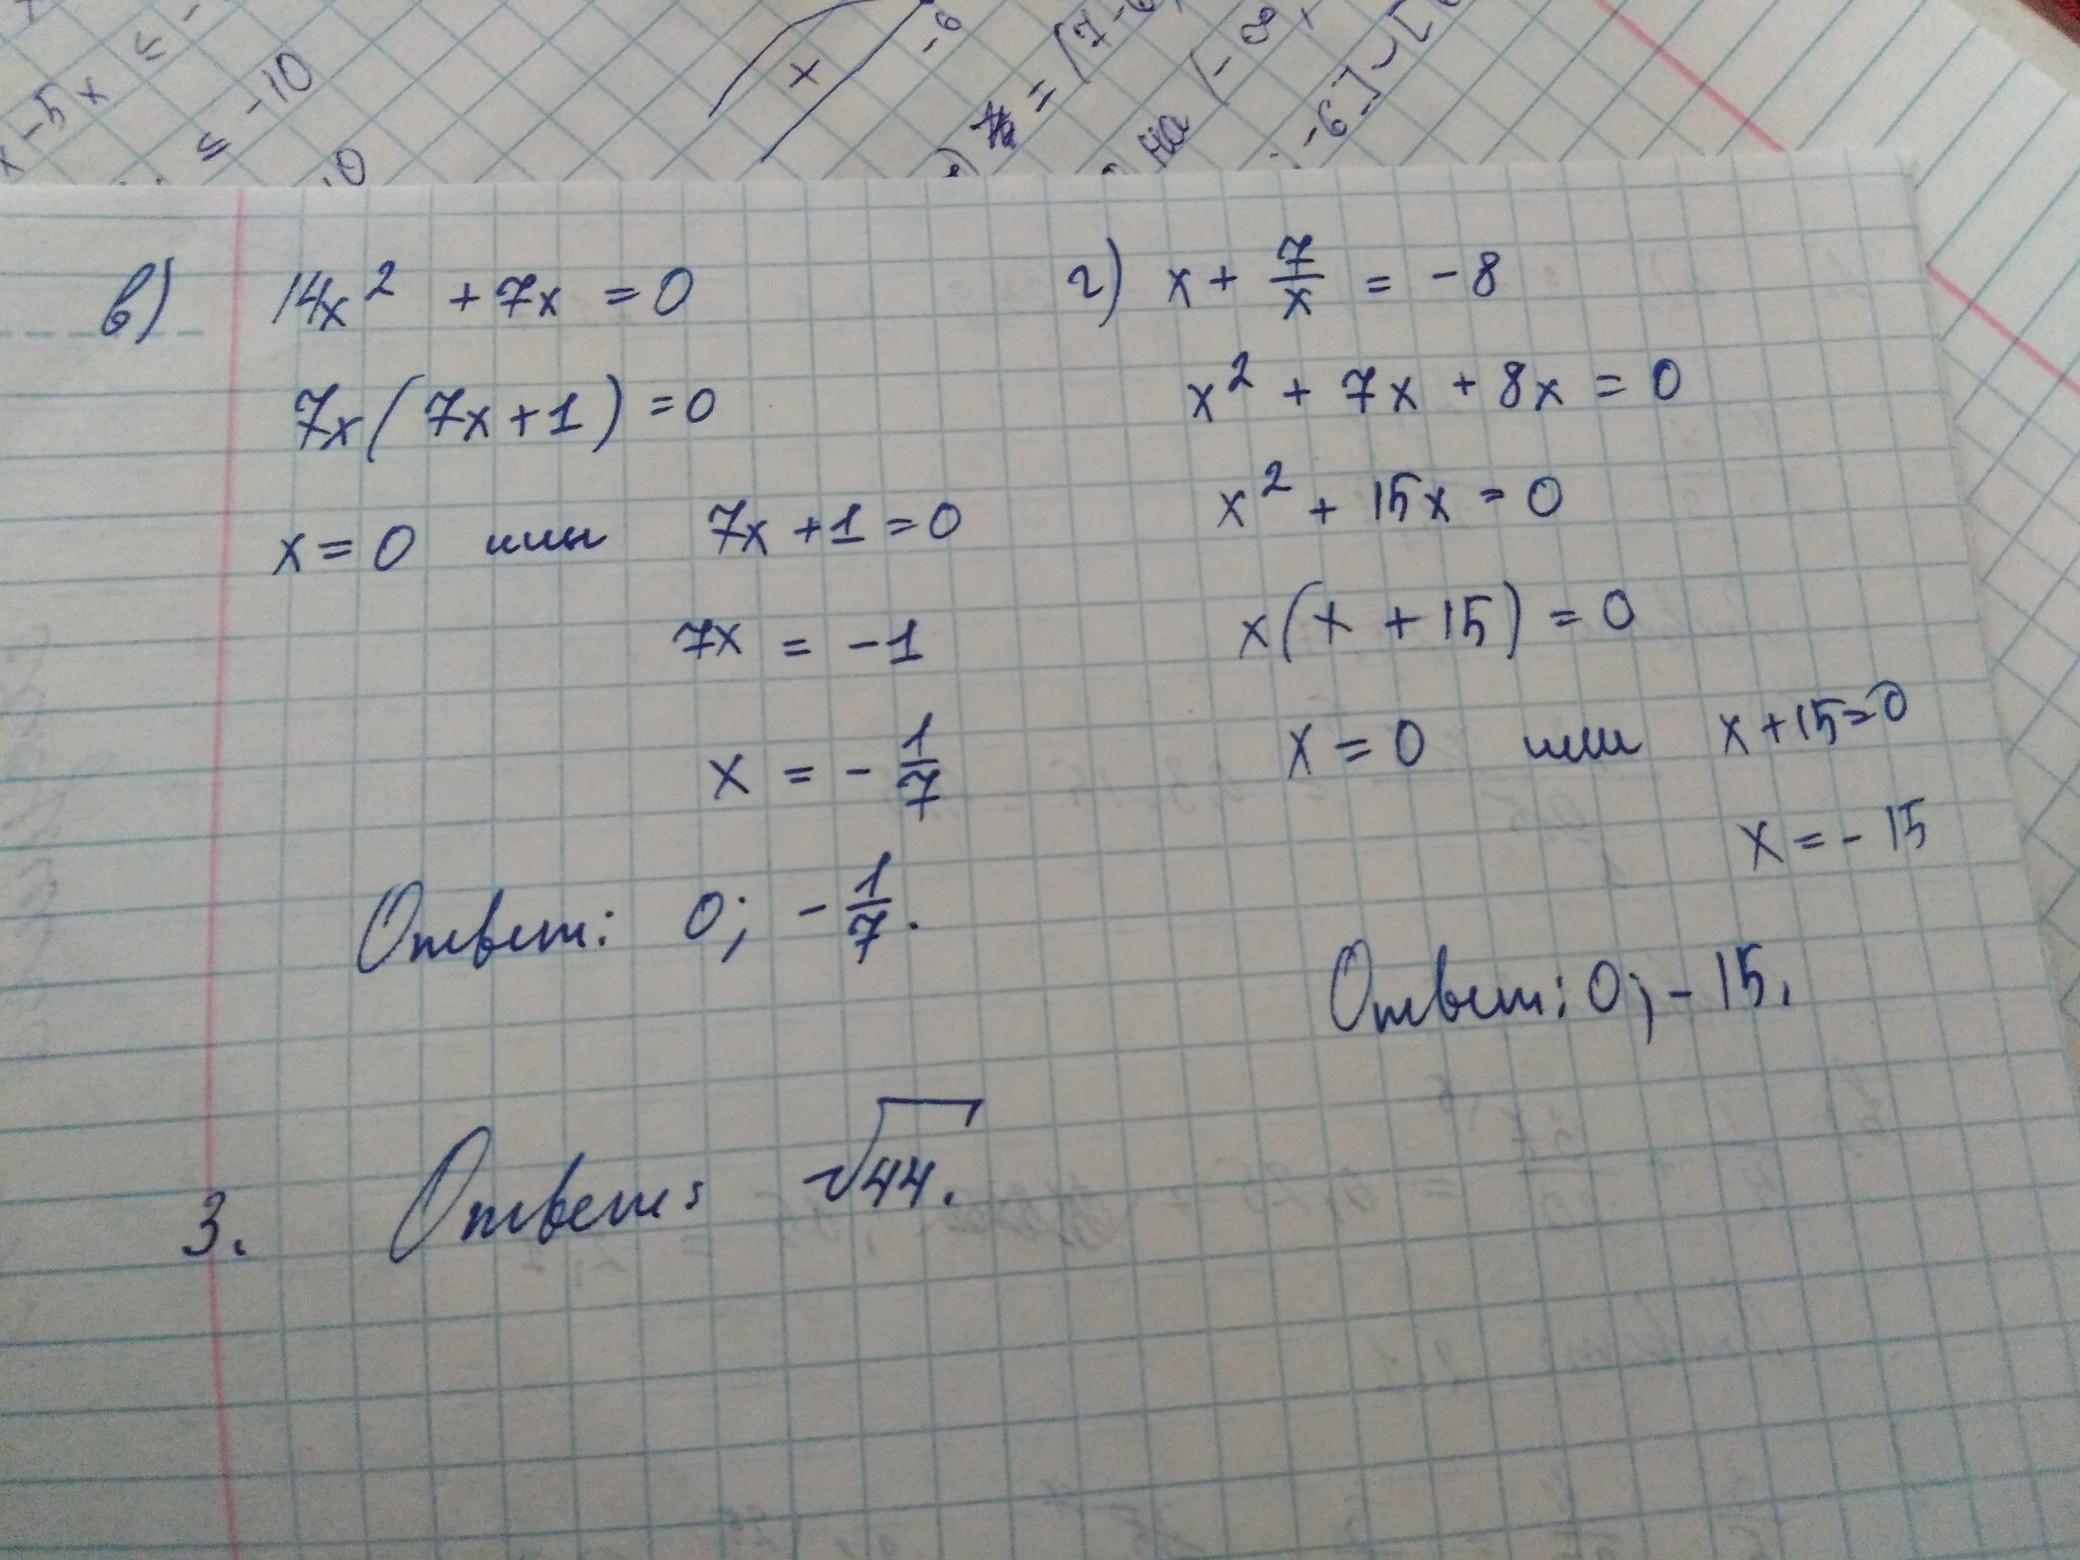 x - 5x ≤ -
≤ -10
+
-6
= (7-6
на (-∞,
-6]∪[
в) 14x² + 7x = 0
7x(7x+1) = 0
x = 0 или 7x + 1 = 0
7x = -1
x = -1/7
Ответ: 0; -1/7.
г) x + 7/x = -8
x² + 7x + 8x = 0
x² + 15x = 0
x(x + 15) = 0
x = 0 или x + 15 = 0
x = -15
Ответ: 0; -15.
3. Ответ: √44.